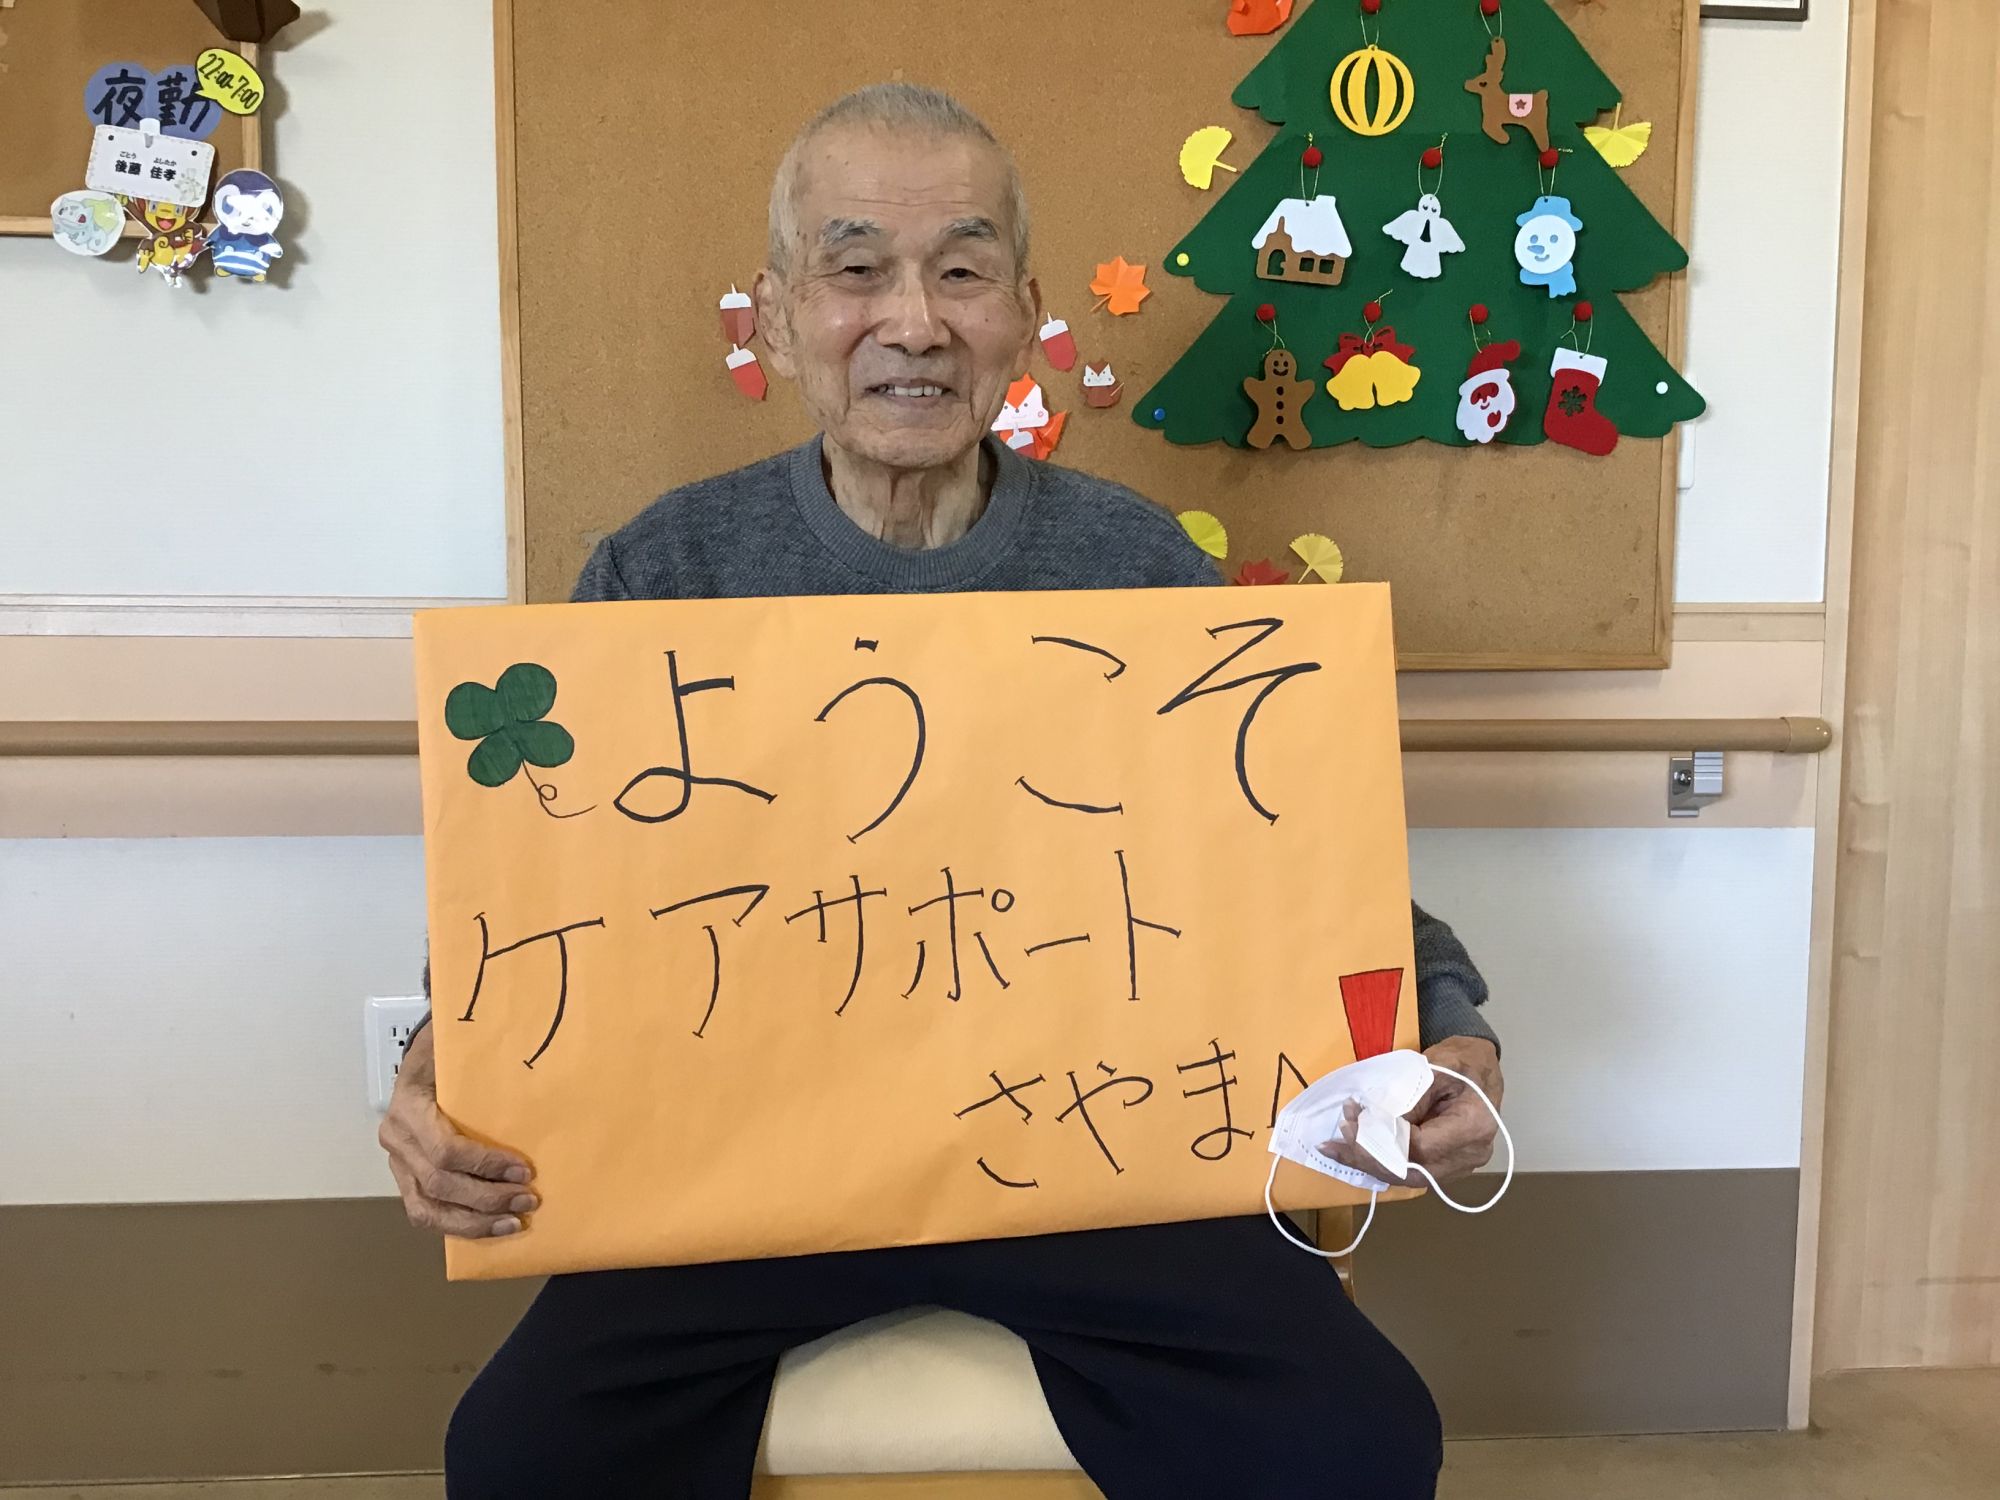 夜勤
22:00-7:00
ごとう よしたか
後藤 佳孝
ようこそ
ケアサポート
さやまへ